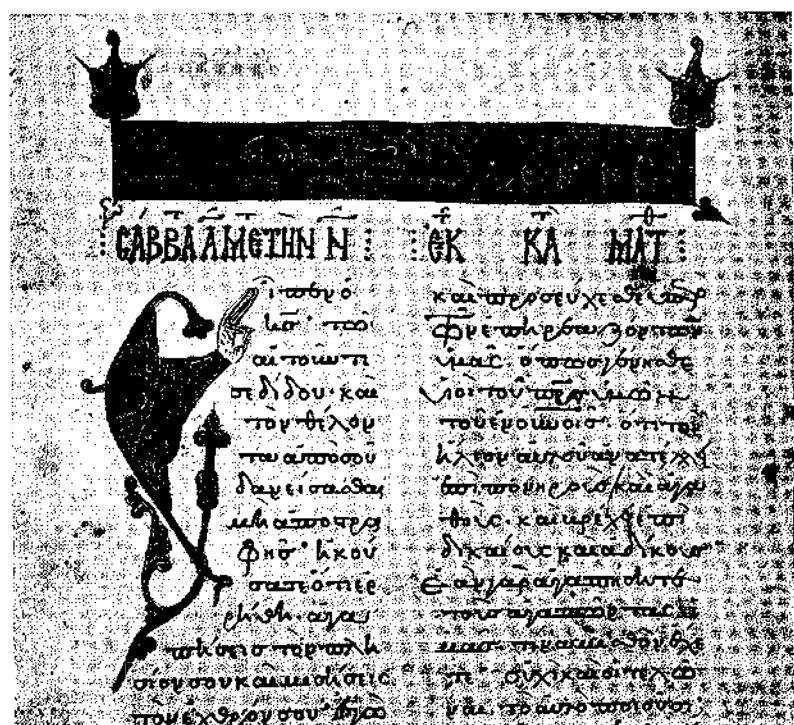 ϹΑΒΒΑ Α ΜΕΤΗΝ Ν ΕΚ ΚΑ ΜΑΤ
ἶπεν ὁ
κς· τῶ
αἰτοῦντί
σε δίδου· καὶ
τὸν θέλον
τα ἀπὸ σοῦ
δανείσασθαι
μὴ ἀποστρα
φῆς· ἠκού
σατε ὅτι ἐρ
ρήθη· ἀγα
πήσεις τὸν πλη
σίον σου καὶ μισήσεις
τὸν ἐχθρόν σου· ἐγὼ
καὶ προσεύχεσθε ὑπὲρ
τῶν ἐπηρεαζόντων
ὑμᾶς· ὅπως γένησθε
υἱοὶ τοῦ πρς ὑμῶν
τοῦ ἐν οὐνοις· ὅτι τὸν
ἥλιον αὐτοῦ ἀνατέλλει
ἐπὶ πονηροὺς καὶ ἀγα
θούς· καὶ βρέχει ἐπὶ
δικαίους καὶ ἀδίκους
Ἐὰν γὰρ ἀγαπήσητε
τοὺς ἀγαπῶντας ὑ
μᾶς· τίνα μισθὸν ἔχε
τε· οὐχὶ καὶ οἱ τελῶ
ναι τὸ αὐτὸ ποιοῦσι